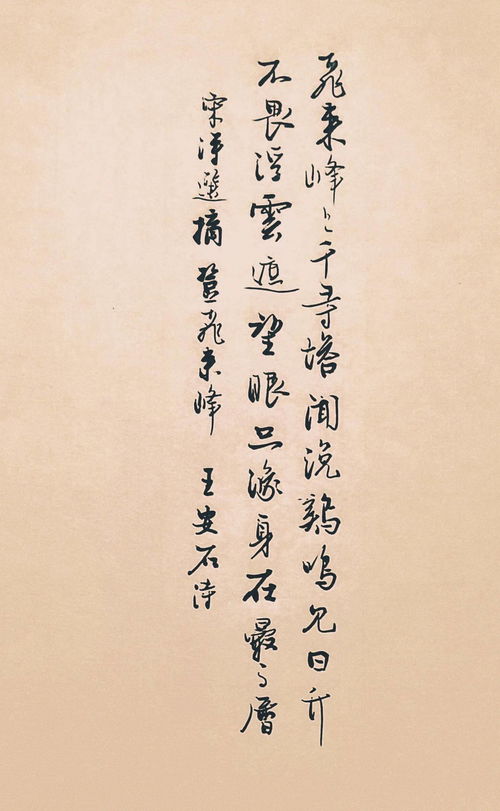 飛來峰上千尋塔聞說鷄鳴見日升
不畏浮雲遮望眼只緣身在最高層
宋詩選摘登飛來峰 王安石詩